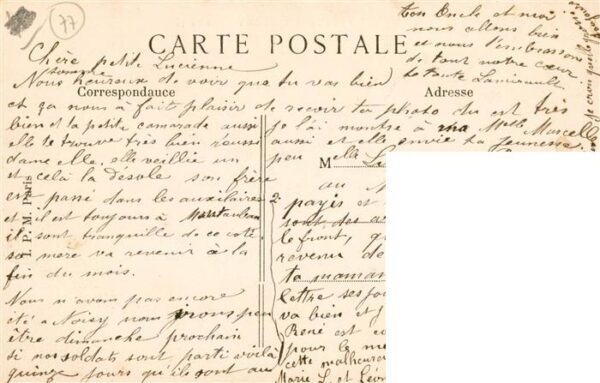 77
CARTE POSTALE
Correspondance
Adresse
I. P. M. Paris
Chère petite Lucienne
Nous sommes heureux de voir que tu vas bien
et ça nous à fait plaisir de recevoir ta photo du est très
bien et la petite camarade aussi
elle te trouve très bien aussi
dame elle, elle veillie un
et celà la désole son frère
est passé dans les auxiliaires
et il est toujours à Montauban
il sont tranquille de ce coté.
sa mere va revenir à la
fin du mois.
Nous n'avons pas encore
été a Noisy nous irons peu
être dimanche prochain
si nos soldats sont parti voilà
quinze jours qu'ils sont au
je l'ai montré à ma Melle Marcelle
aussi et elle envie ta jeunesse.
peu
M
au
2. payés et
sont des
le front,
revenu de
ta maman
lettre ses
va bien et
René est
pour le
cette malheureu
Marie L. et Léon
ton Oncle et moi
nous allons bien
et nous t'embrassons
de tout notre cœur
ta tante
je crois